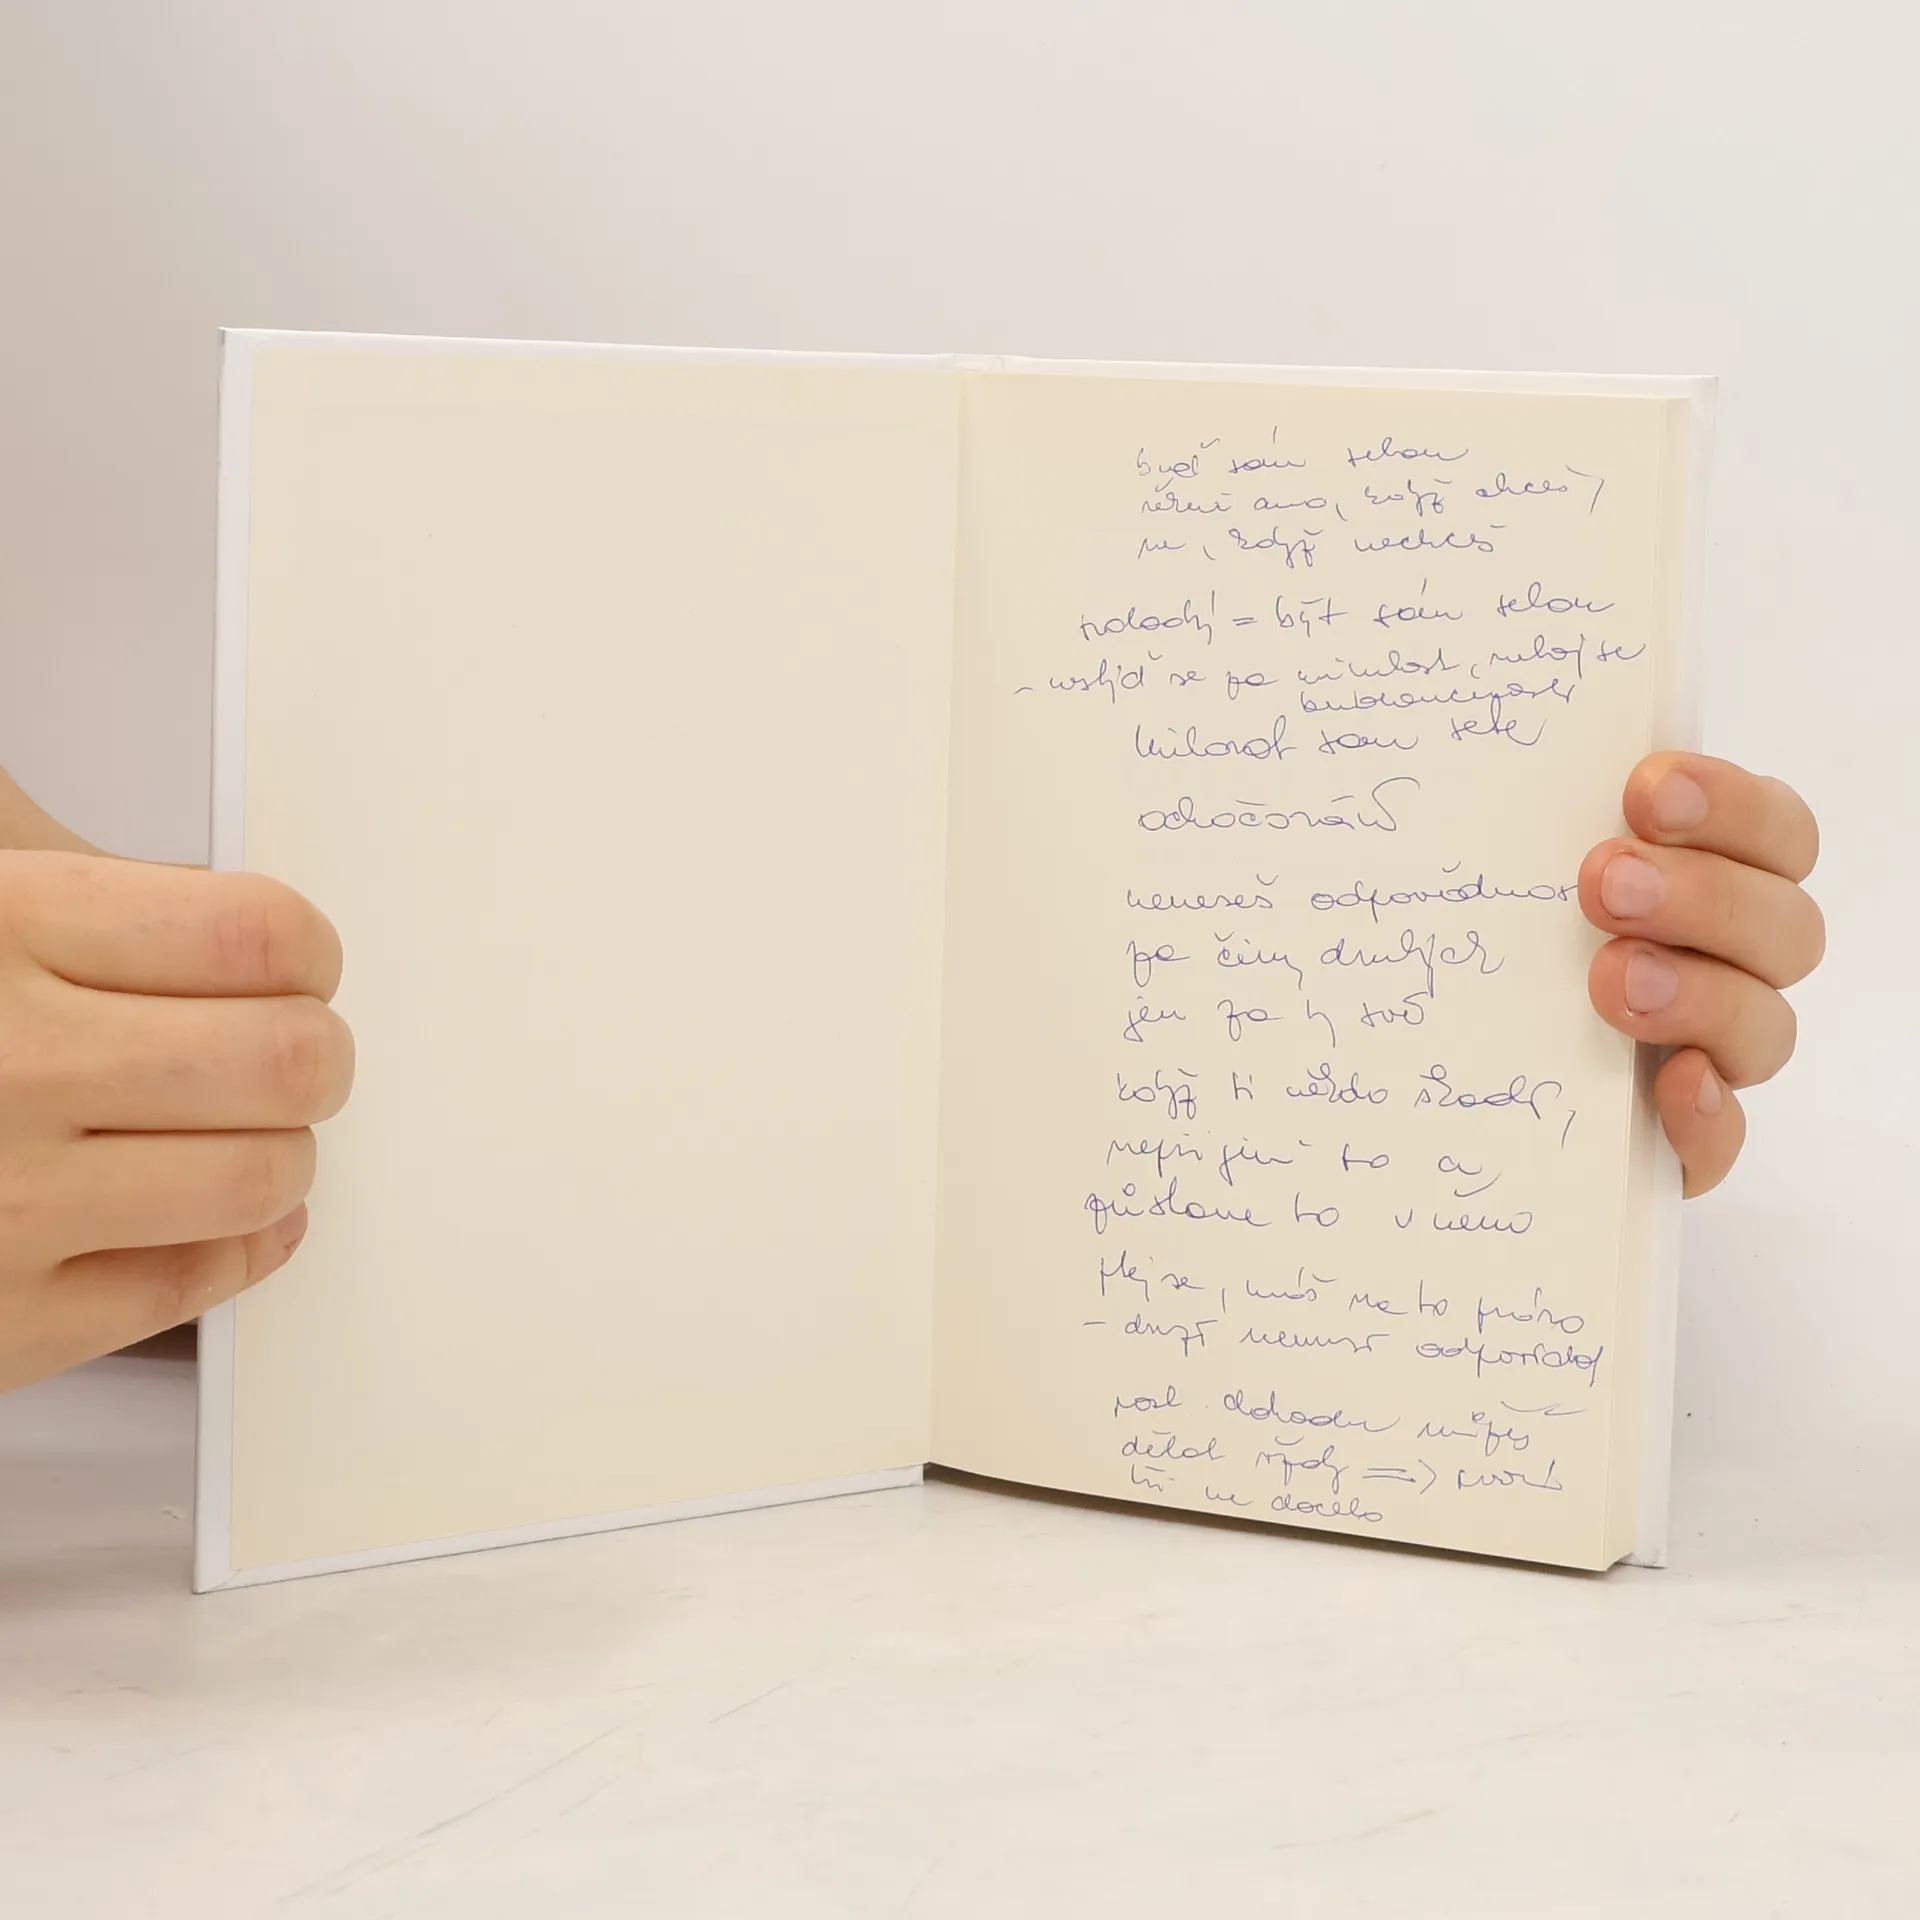 buď sám sebou
řekni ano, když chceš,
ne, když nechceš
= být sám sebou
- nestyď se za minulost, neboj se
budoucnosti
milovat sám sebe
ochočování
neneseš odpovědnost
za činy druhých
jen za ty své
když ti někdo škodí,
to a
zůstane to v něm
ptej se, máš na to právo
- druzí nemusí odpovídat
dohodu můžeš
dělat vždy =>
ne docela